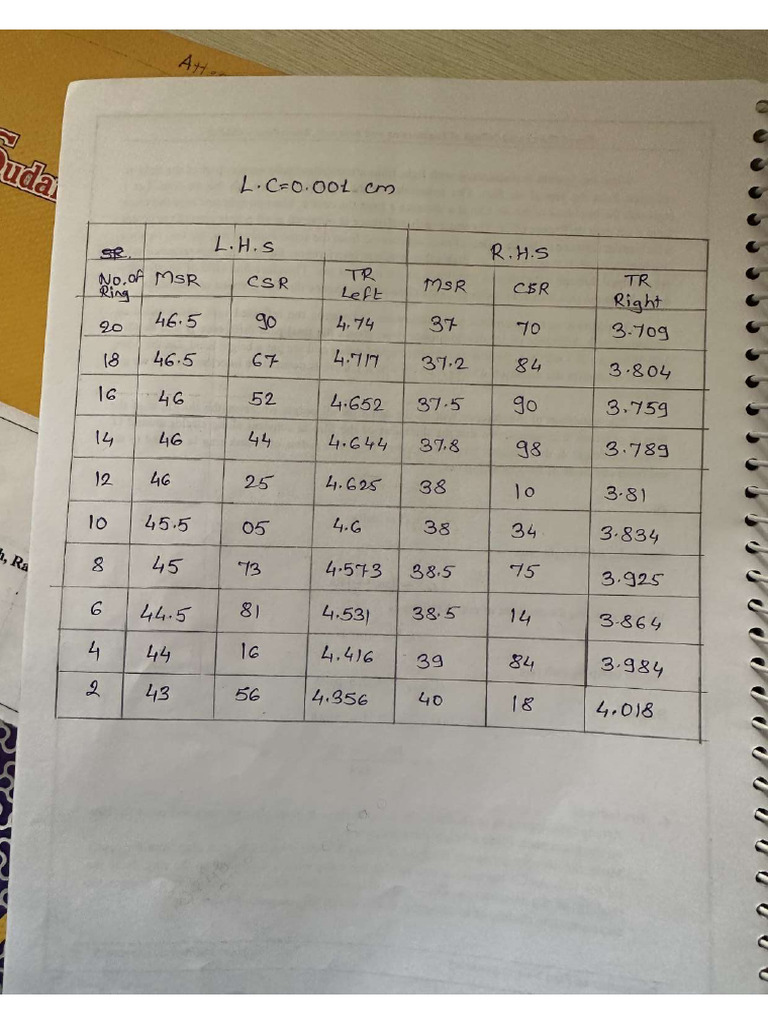 Att
Sudar
L.C=0.001 cm
SR. L.H.S R.H.S
No. of Ring MSR CSR TR Left MSR CSR TR Right
20 46.5 90 4.74 37 70 3.709
18 46.5 67 4.717 37.2 84 3.804
16 46 52 4.652 37.5 90 3.759
14 46 44 4.644 37.8 98 3.789
12 46 25 4.625 38 10 3.81
10 45.5 05 4.6 38 34 3.834
8 45 73 4.573 38.5 75 3.925
6 44.5 81 4.531 38.5 14 3.864
4 44 16 4.416 39 84 3.984
2 43 56 4.356 40 18 4.018
h, Ra